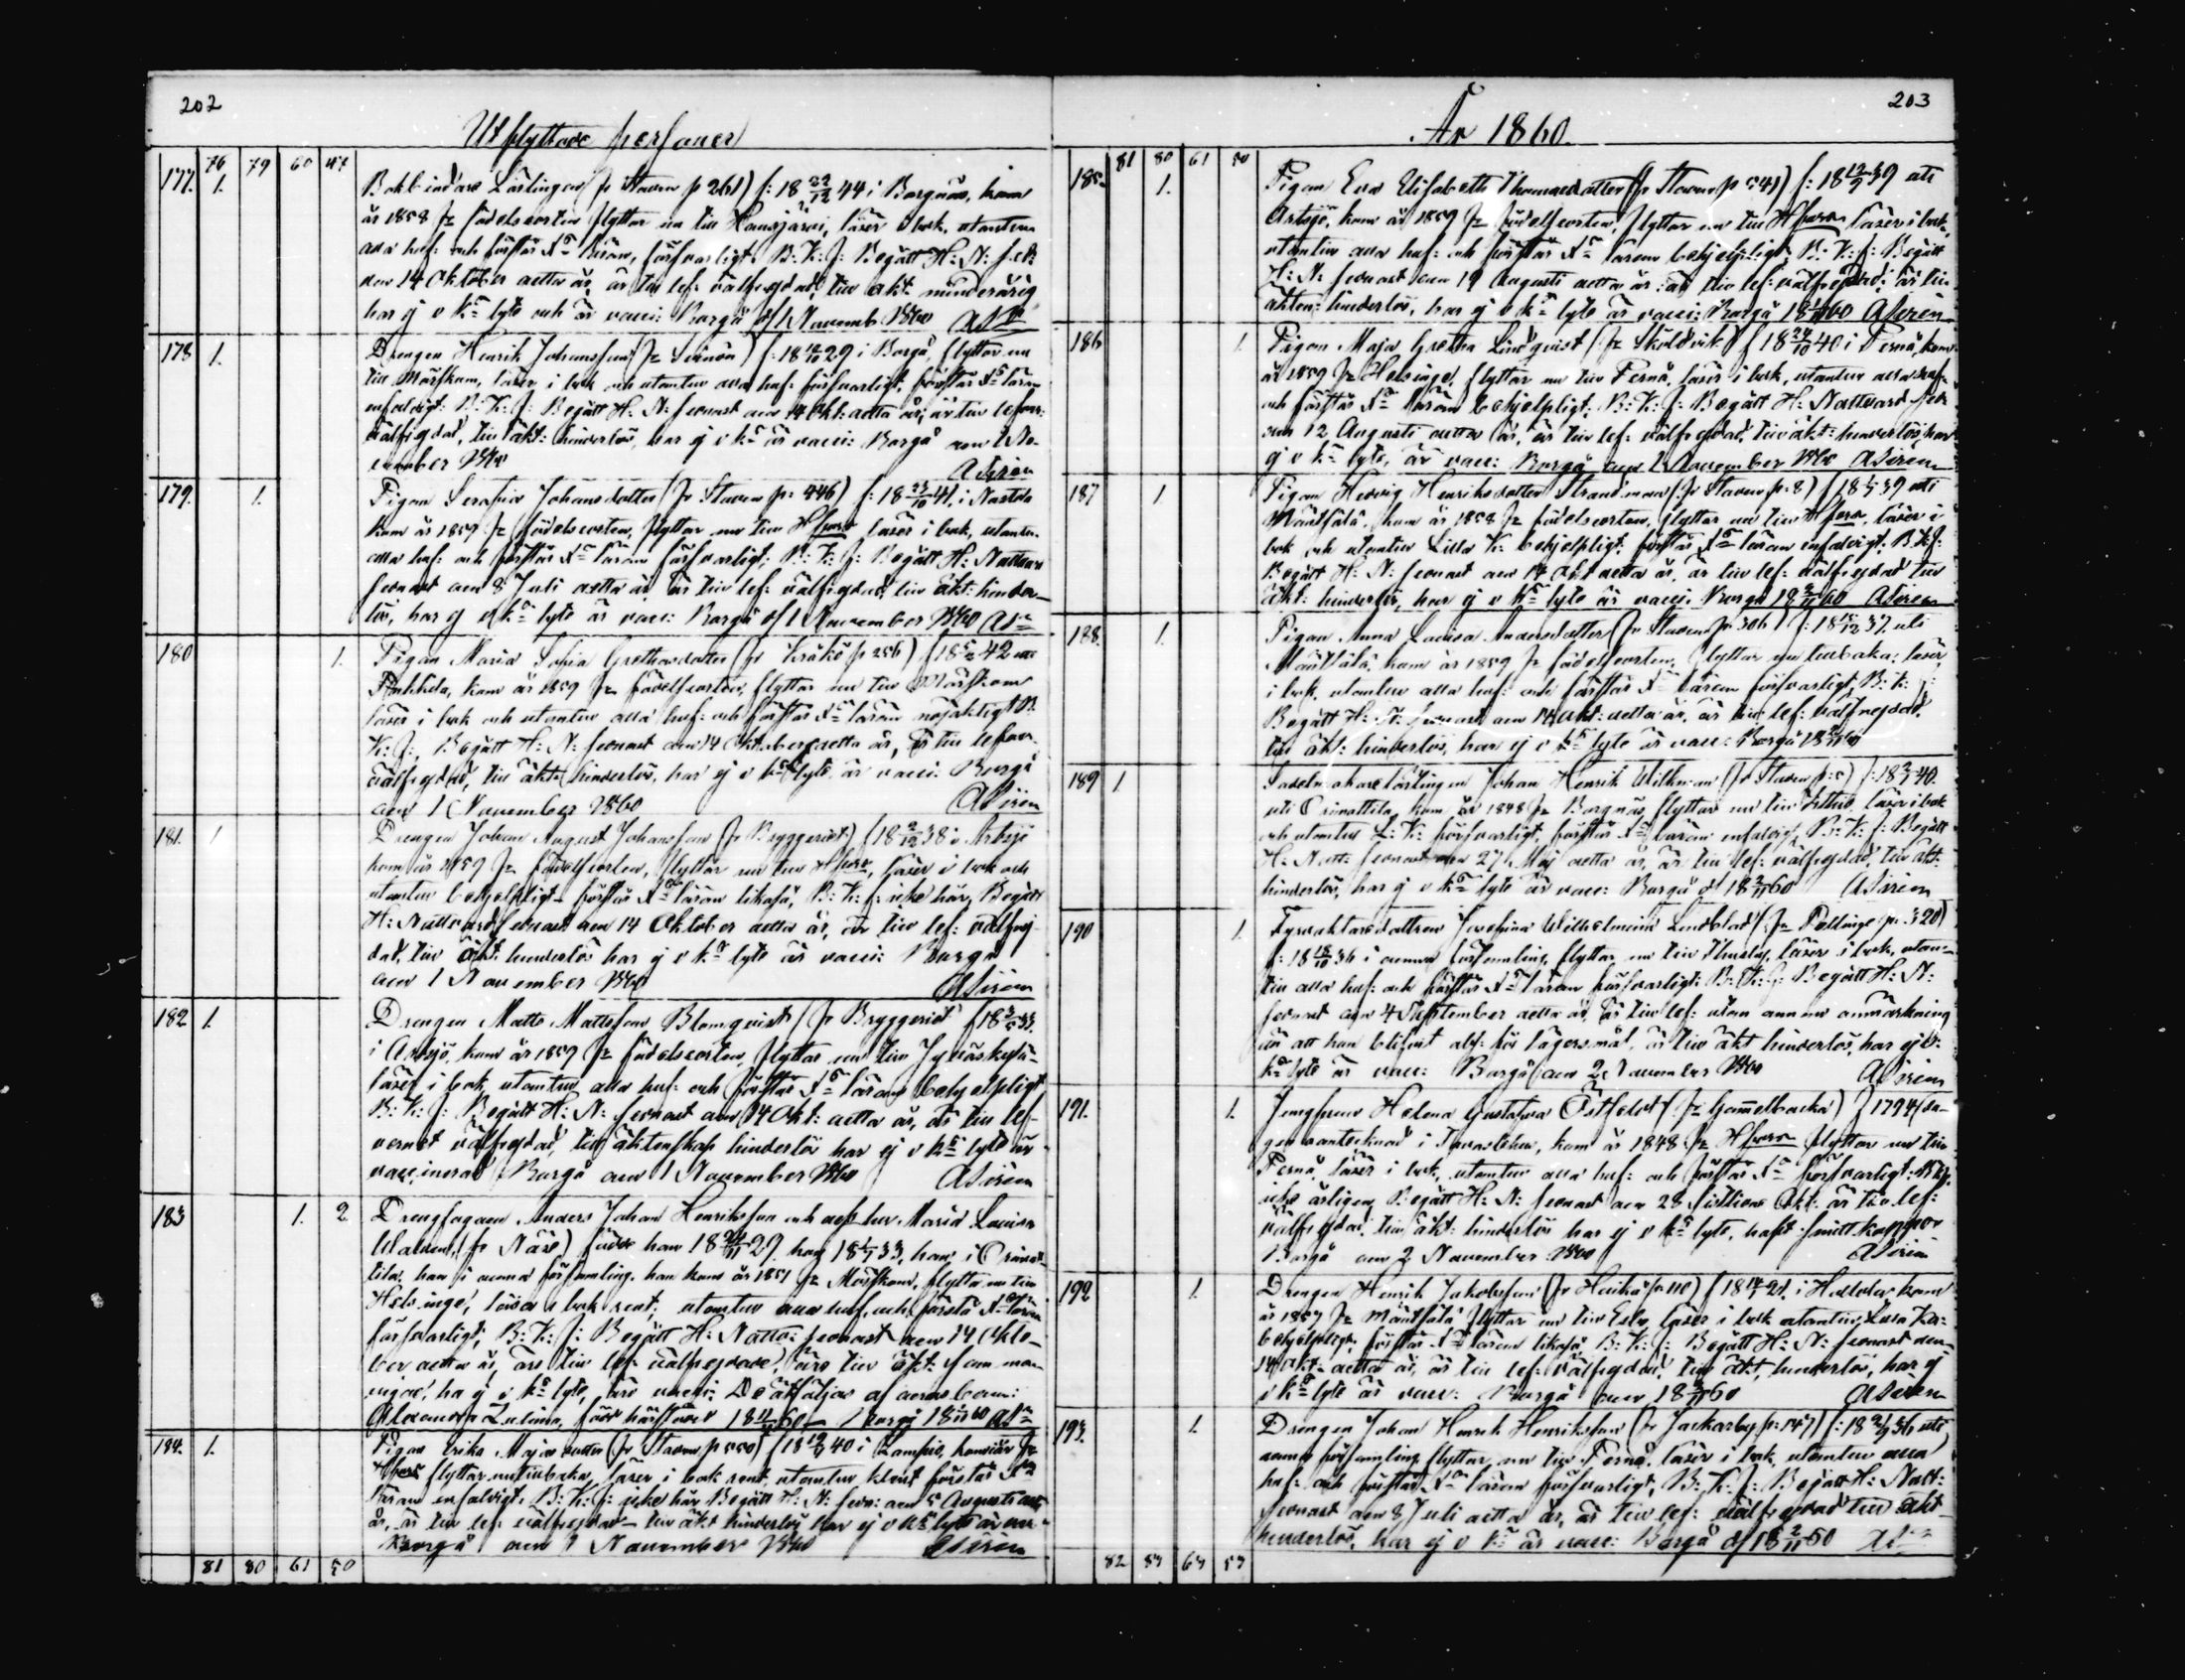 202
Utflyttade personer
76 79 60 47
177. 1. Bokbindare Lärlingen fr Staden p 261) f: 18 22/12 44 i Borgnäs, kom
år 1858 fr födelseorten flyttar nu till Hausjärvi, läser i bok, utantill
alla huf: och förstår Xti läran, försvarligt. B: K: f: Begått H: N: sedn:
den 14 Oktober detta år, är till lef: välfrejdad, till äkt: minderårig
har ej v k: lyte och är vacci: Borgå d/1 Novemb: 1860
178 1. Drengen Henrik Johansson (fr ) f: 18 29 i Borgå, flyttar nu
till Mörskom, läser i bok och utantill alla huf: försvarligt, förstår Xti läran
enfaldigt: B: K: f: Begått H: N: senast den 14 Okt: detta år; är till lefver:
välfrejdad, till äkt: hinderlös, har ej v k: är vacci: Borgå den 1 No-
vember 1860 ASirén
179. 1. Pigan Serafia Johansdotter (fr Staden p: 446) f: 18 23/10 41, i Nastola
kom år 1859 fr födelseorten, flyttar nu till Hfors läser i bok, utantill
alla huf: och förstår Xti läran försvarligt; B: K: f: Begått H: Nattvard
senast den 8 Juli detta år är till lef: välfrejdad, till äkt: hinder-
lös, har ej v k: lyte är vacc: Borgå d/1 November 1860
180 1. Pigan Maria Sofia Grethasdotter (fr Kråkö p 256) f 18 42
kom år 1859 fr födelseorten, flyttar nu till Mörskom
läser i bok och utantill alla huf: och förstår Xti läran nöjaktigt B:
K: f: Begått H: N: senast den 14 Oktober detta år, är till lefver:
välfrejdad, till äkt: hinderlös, har ej v k: lyte är vacci: Borgå
den 1 November 1860 ASirén
181. 1 Drengen Johan August Johansson (fr Bryggeriet) f 18 2/12 38 i Artsjö
kom år 1859 fr födelseorten, flyttar nu till Hfors, läser i bok och
utantill behjelpligt förstår Xti läran likaså, B: K: f: icke här, Begått
H: Nattvard senast den 14 Oktober detta år, är till lef: välfrej-
dad, till äkt: hinderlös har ej v k: lyte är vacci: Borgå
den 1 November 1860 ASirén
182 1. Drengen Matts Mattsson Blomqvist (fr Bryggeriet f 18 33.
i Artsjö, kom år 1859 fr födelseorten, flyttar nu till Jyväskylä
läser i bok, utantill alla huf: och förstår Xti läran behjelpligt
B: K: f: Begått H: N: senast den 14 Okt: detta år, är till lef-
vernet välfrejdad, till äktenskap hinderlös har ej v k: lyte är
vaccinerad Borgå den 1 November 1860 ASirén
183 1. 2 Drengfogden Anders Johan Henriksson och dess hu: Maria Lovisa
(fr Näse) födde han 18 29 hon 18 33, han i Orimat-
tila, hon i denna församling. han kom år 1851 fr Mörskom, flytta nu till
Helsinge, läsa i bok rent; utantill alla huf: och förstå Xti läran
försvarligt; B: K: f: Begått H: Nattv: senast den 14 Okto-
ber detta år, äro till lef: välfrejdade, äro till äkt: samman-
vigde, ha ej v k: lyte, äro vacci: De åtföljas af deras barn:
Alexandra född härstädes 18 60 Borgå 18 1/11 60
184. 1. Pigan Erika Majasdotter (fr Staden p 550) f 18 40 i Lampis, kom i år fr
Hfors flyttar nu tillbaka, läser i bok rent utantill klent förstår Xti
läran enfaldigt. B: K: f: icke här Begått H: N: sedn: den 5 Augusti detta
år, är till lef: välfrejdad till äkt hinderlös har ej v k: lyte är vac:
Borgå den 1 November 1860 ASirén
81 80 61 50
203
År 1860.
81 80 61 50
185. 1. Pigan Eva Elisabeth Thomasdotter (fr Staden p 541) f: 18 12/9 39 uti
Artsjö, kom år 1859 fr födelseorten, flyttar nu till Hfors läser i bok,
utantill alla huf: och förstår Xti läran behjelpligt; B: K: f: Begått
H: N: senast den 19 Augusti detta år: är till lef: välfrejdad: är till
äkten: hinderlös, har ej v k: lyte är vacci: Borgå 18 1/11 60 ASirén
186 1. Pigan Maja Gretha Lindqvist (fr Sköldvik) f 18 24/10 40 i Pernå, kom
år 1859 fr Helsinge, flyttar nu till Pernå, läser i bok, utantill alla huf:
och förstår Xti läran behjelpligt. B: K: f: Begått H: Nattvard sedn
den 12 Augusti detta år, är till lef: välfrejdad, till äkt: hinderlös, har
ej v k: lyte, är vacc: Borgå den 2 November 1860 ASirén
187 1. Pigan Hedvig Henriksdotter Strandman (fr Staden p: 8) f 18 39 uti
Mäntsälä, kom år 1858 fr födelseorten, flyttar nu till Hfors, läser i
bok och utantill Lilla K: behjelpligt: förstår Xti läran enfaldigt: B. K. f:
Begått H: N: senast den 14 Okt detta år, är till lef: välfrejdad till
äkt: hinderlös, har ej v k: lyte är vacci. Borgå 18 2/11 60 ASirén
188. 1. Pigan Anna Lovisa Andersdotter (fr Staden p 306) f: 18 37. uti
Mäntsälä, kom år 1859 fr födelseorten, flyttar nu tillbaka: läser
i bok, utantill alla huf: och förstår Xti läran försvarligt; B: K: f:
Begått H: N: senast den 14 Okt: detta år, är till lef: välfrejdad,
till äkt: hinderlös, har ej v k: lyte är vacc: Borgå 18 2/11 60
189 1 Sadelmakarelärlingen Johan Henrik Willman (fr Staden p: ) f: 18 40.
uti Orimattila, kom år 1848 fr Borgnäs flyttar nu till läser i bok
och utantill L: K: försvarligt, förstår Xti läran enfaldigt. B: K: f: Begått
H: Natt: senast den 27 Maj detta år, är till lef: välfrejdad, till äkt:
hinderlös, har ej v k: lyte är vacc: Borgå d 18 2/11 60 ASirén
190 1. Fyrvaktaredottren Josefina Wilhelmina Lindblad (fr Pellinge p: 320)
f: 18 36 i denna församling, flyttar nu till Thusby, läser i bok, utan-
till alla huf: och förstår Xti läran försvarligt: B: K: f: Begått H: N:
senast den 4 September detta år, är till lef: utan annan anmärkning
än att hon blifvit abs: för lägersmål, är till äkt hinderlös, har ej v:
k: lyte är vacc: Borgå den 2 November 1860 ASirén
191. 1. Jungfrun Helena Gustafva Östfeldt (fr Gammelbacka) f 1794 (da-
gen oantecknad i Tavastehus, kom år 1848 fr Hfors flyttar nu till
Pernå, läser i bok, utantill alla huf: och förstår Xti försvarligt: B K f.
icke årligen, Begått H: N: senast den 28 sistlidne Okt: är till lef:
välfrejdad till äkt: hinderlös har ej v k: lyte, haft smittkoppor
Borgå den 2 November 1860 ASirén
192 1. Drengen Henrik Jakobsson (fr p 110) f 18 i Hollola kom
år 1857 fr Mäntsälä flyttar nu till Esbo, läser i bok utantill
behjelpligt, förstår Xti läran likaså B: K: f: Begått H: N: senast den
14 Okt: detta år, är till lef: välfrejdad, till äkt, hinderlös, har ej
v k: lyte är vacc: Borgå den 18 2/11 60 ASirén
193. 1. Drengen Johan Henrik Henriksson (fr Jackarby p: 147) f: 18 36 uti
denna församling flyttar nu till Pernå, läser i bok, utantill alla
huf: och förstår Xti läran försvarligt, B: K: f: Begått H: Natt:
senast den 8 Juli detta år, är till lef: välfrejdad till äkt
hinderlös, har ej v k: är vacc: Borgå d/18 2/11 60
82 83 63 53